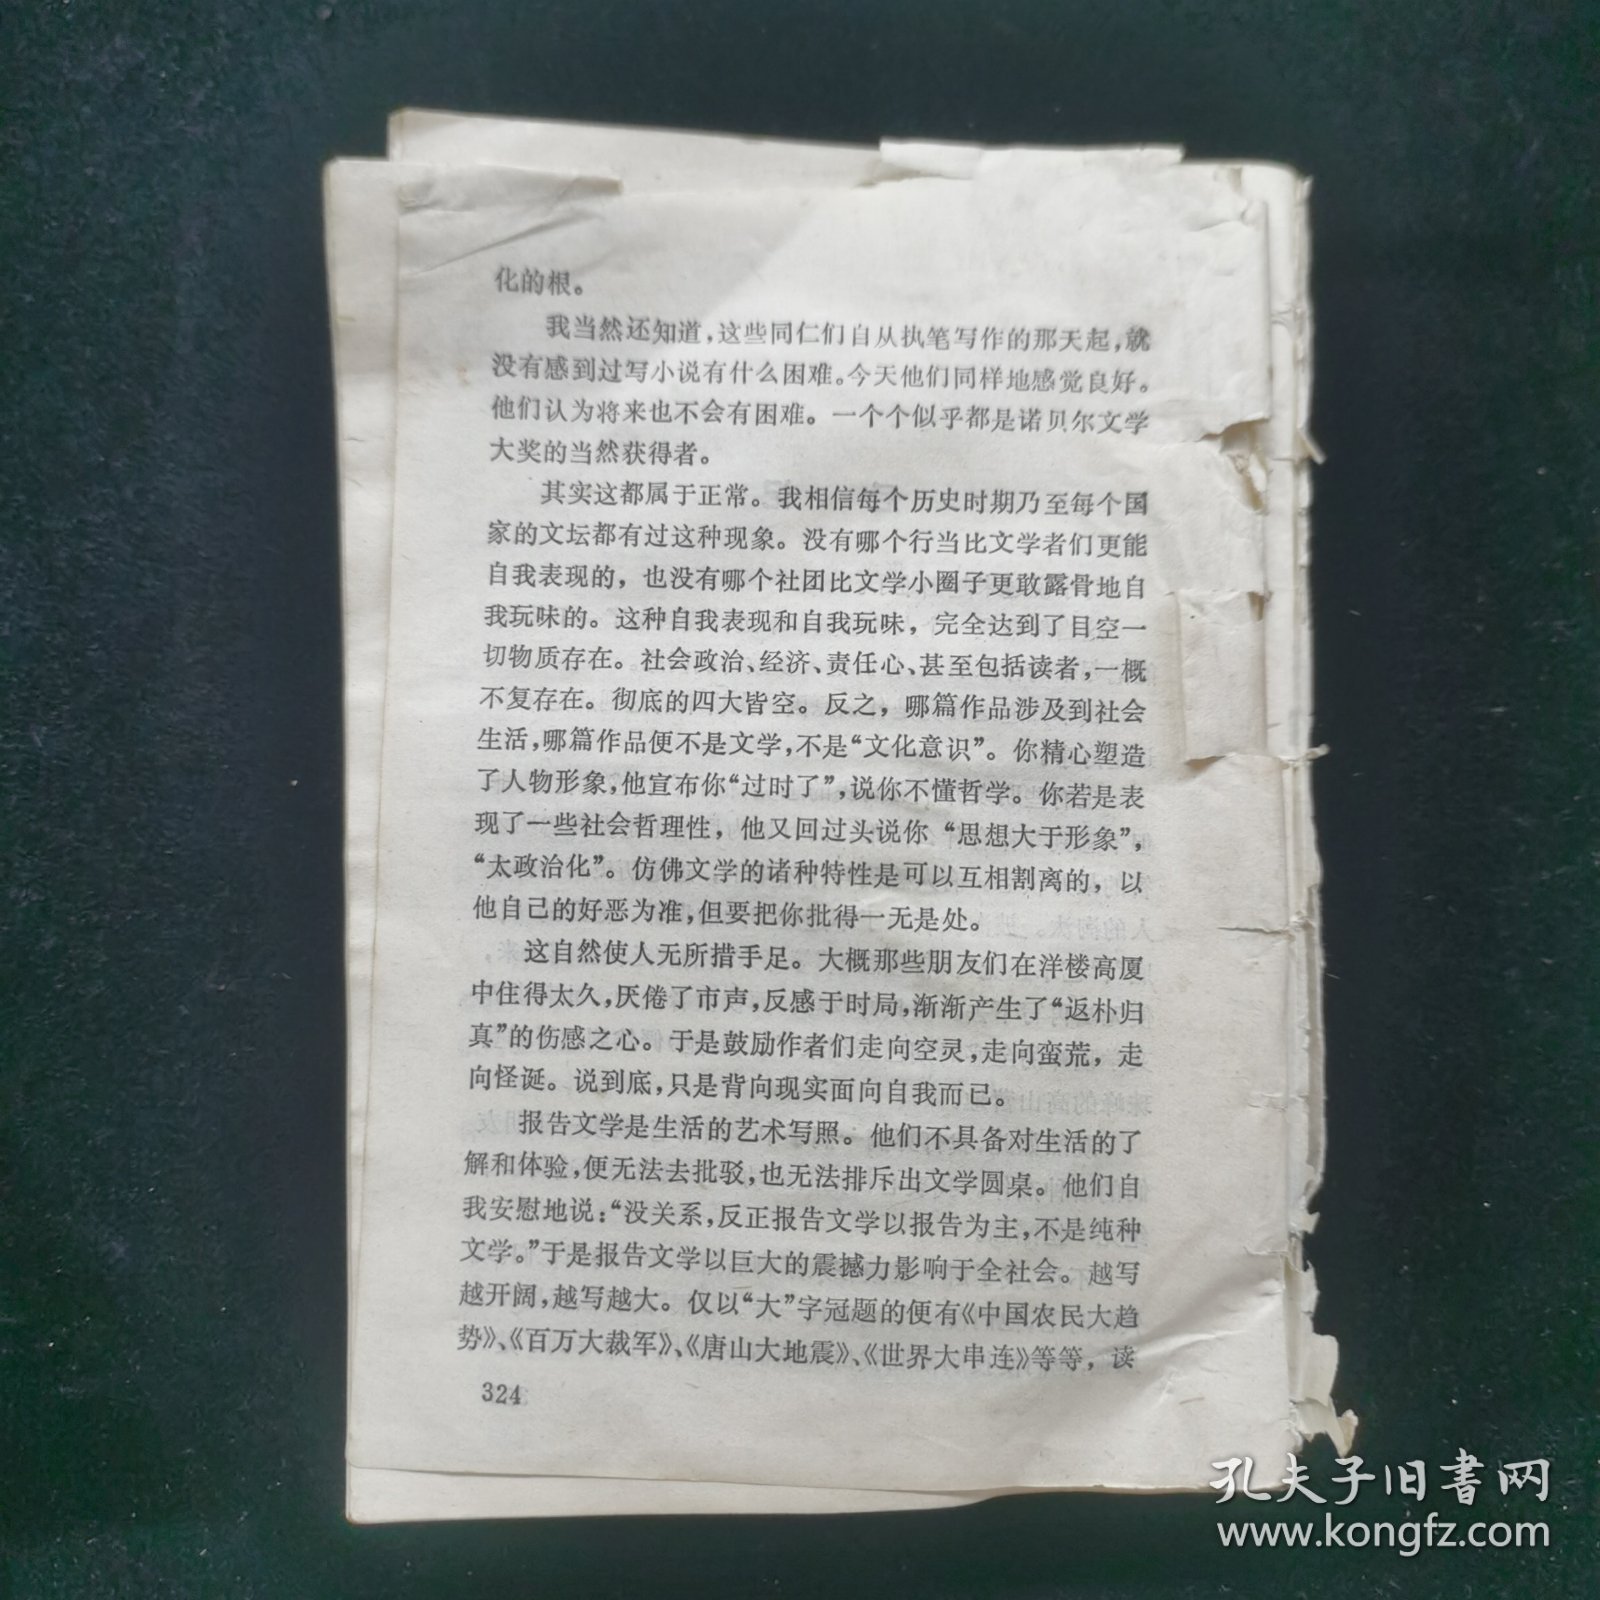 化的根。
我当然还知道，这些同仁们自从执笔写作的那天起，就
没有感到过写小说有什么困难。今天他们同样地感觉良好。
他们认为将来也不会有困难。一个个似乎都是诺贝尔文学
大奖的当然获得者。
其实这都属于正常。我相信每个历史时期乃至每个国
家的文坛都有过这种现象。没有哪个行当比文学者们更能
自我表现的，也没有哪个社团比文学小圈子更敢露骨地自
我玩味的。这种自我表现和自我玩味，完全达到了目空一
切物质存在。社会政治、经济、责任心、甚至包括读者，一概
不复存在。彻底的四大皆空。反之，哪篇作品涉及到社会
生活，哪篇作品便不是文学，不是“文化意识”。你精心塑造
了人物形象，他宣布你“过时了”，说你不懂哲学。你若是表
现了一些社会哲理性，他又回过头说你“思想大于形象”，
“太政治化”。仿佛文学的诸种特性是可以互相割离的，以
他自己的好恶为准，但要把你批得一无是处。
这自然使人无所措手足。大概那些朋友们在洋楼高厦
中住得太久，厌倦了市声，反感于时局，渐渐产生了“返朴归
真”的伤感之心。于是鼓励作者们走向空灵，走向蛮荒，走
向怪诞。说到底，只是背向现实面向自我而已。
报告文学是生活的艺术写照。他们不具备对生活的了
解和体验，便无法去批驳，也无法排斥出文学圆桌。他们自
我安慰地说：“没关系，反正报告文学以报告为主，不是纯种
文学。”于是报告文学以巨大的震撼力影响于全社会。越写
越开阔，越写越大。仅以“大”字冠题的便有《中国农民大趋
势》、《百万大裁军》、《唐山大地震》、《世界大串连》等等，读
324
孔夫子旧书网
www.kongfz.com